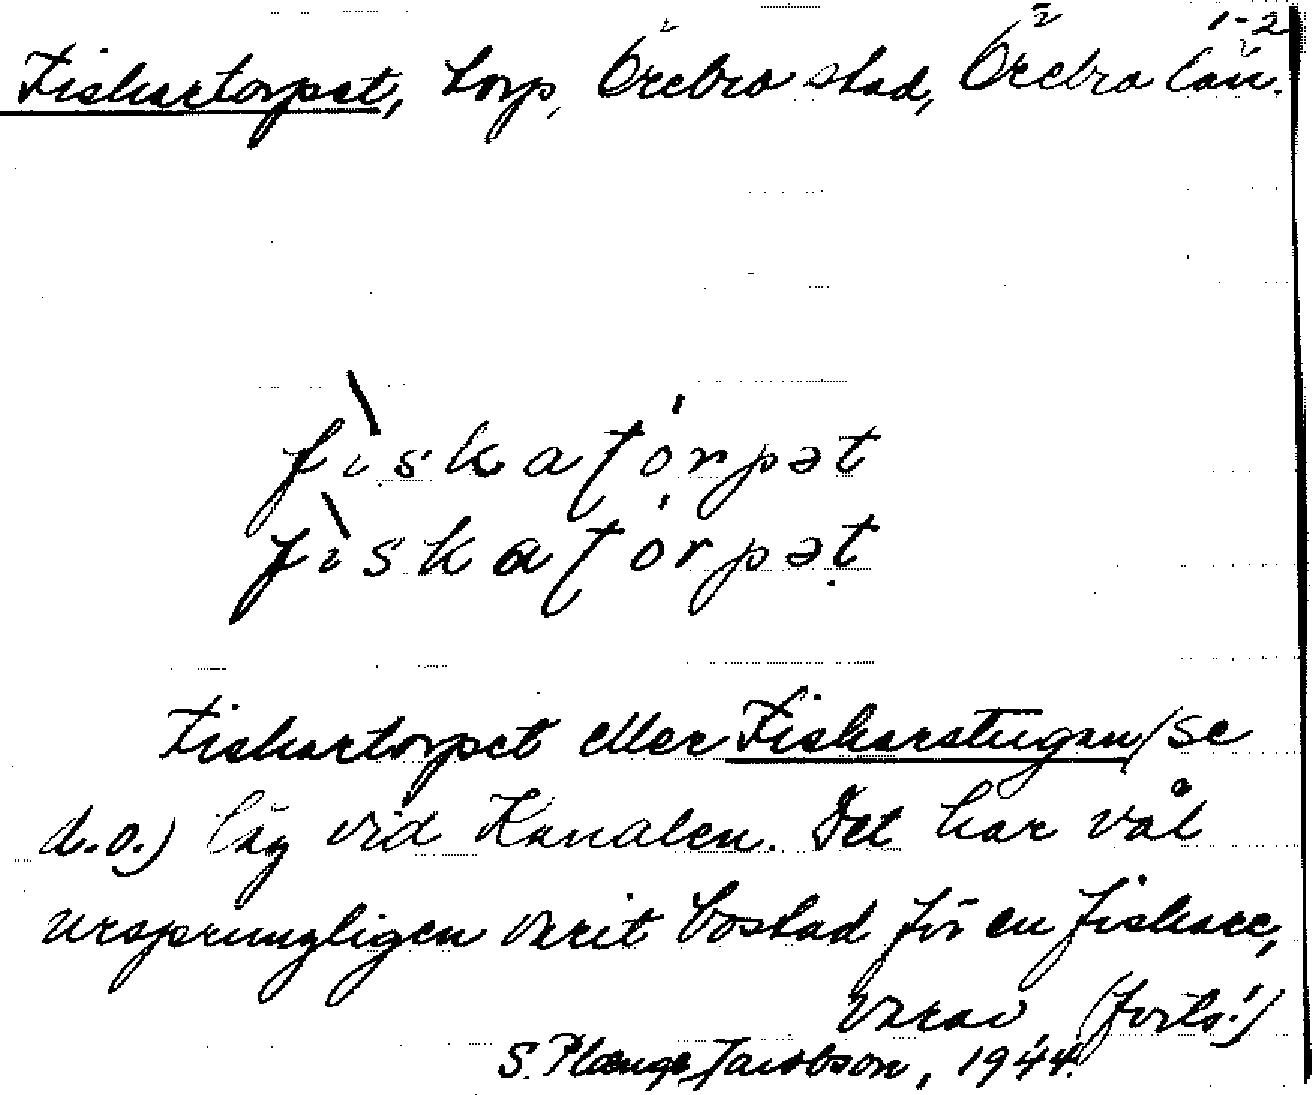 1-2
Fiskartorpet, torp, Örebro stad, Örebro län.
fìskatórpət
fìskatórpət
Fiskartorpet eller Fiskarstugan (se
d.o.) låg vid Kanalen. Det har väl
ursprungligen varit bostad för en fiskare,
varav (forts.!)
S. Plænge Jacobson, 1944.